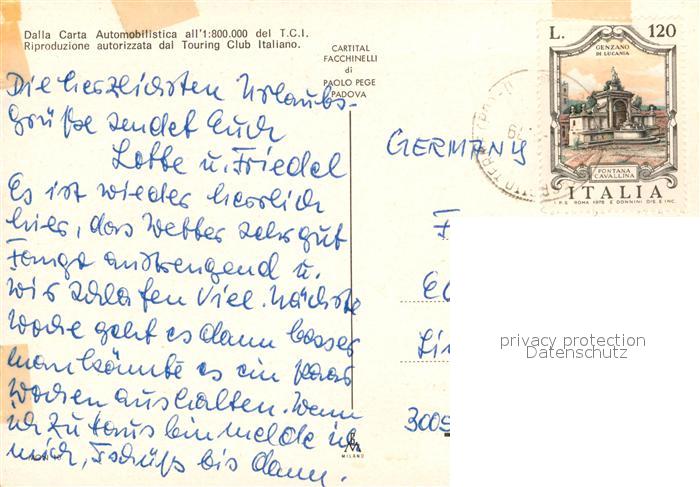 Dalla Carta Automobilistica all'1:800.000 del T.C.I.
Riproduzione autorizzata dal Touring Club Italiano.
CARTITAL
FACCHINELLI
di
PAOLO PEGE
PADOVA
Die herzlichsten Urlaubs-
grüße sendet Euch
Lotte u. Friedel
Es ist wieder herrlich
hier, das Wetter sehr gut
anstrengend u.
wir schlafen viel. Nächste
Woche geht es dann besser
man könnte es ein paar
Wochen aushalten. Wenn
ich zu Haus bin melde ich
mich, Tschüß bis dann.
MILANO
GERMANY
3005
L. 120
GENZANO
DI LUCANIA
FONTANA
CAVALLINA
ITALIA
I.P.S. ROMA 1978 E. DONNINI DIS. E INC.
privacy protection
Datenschutz